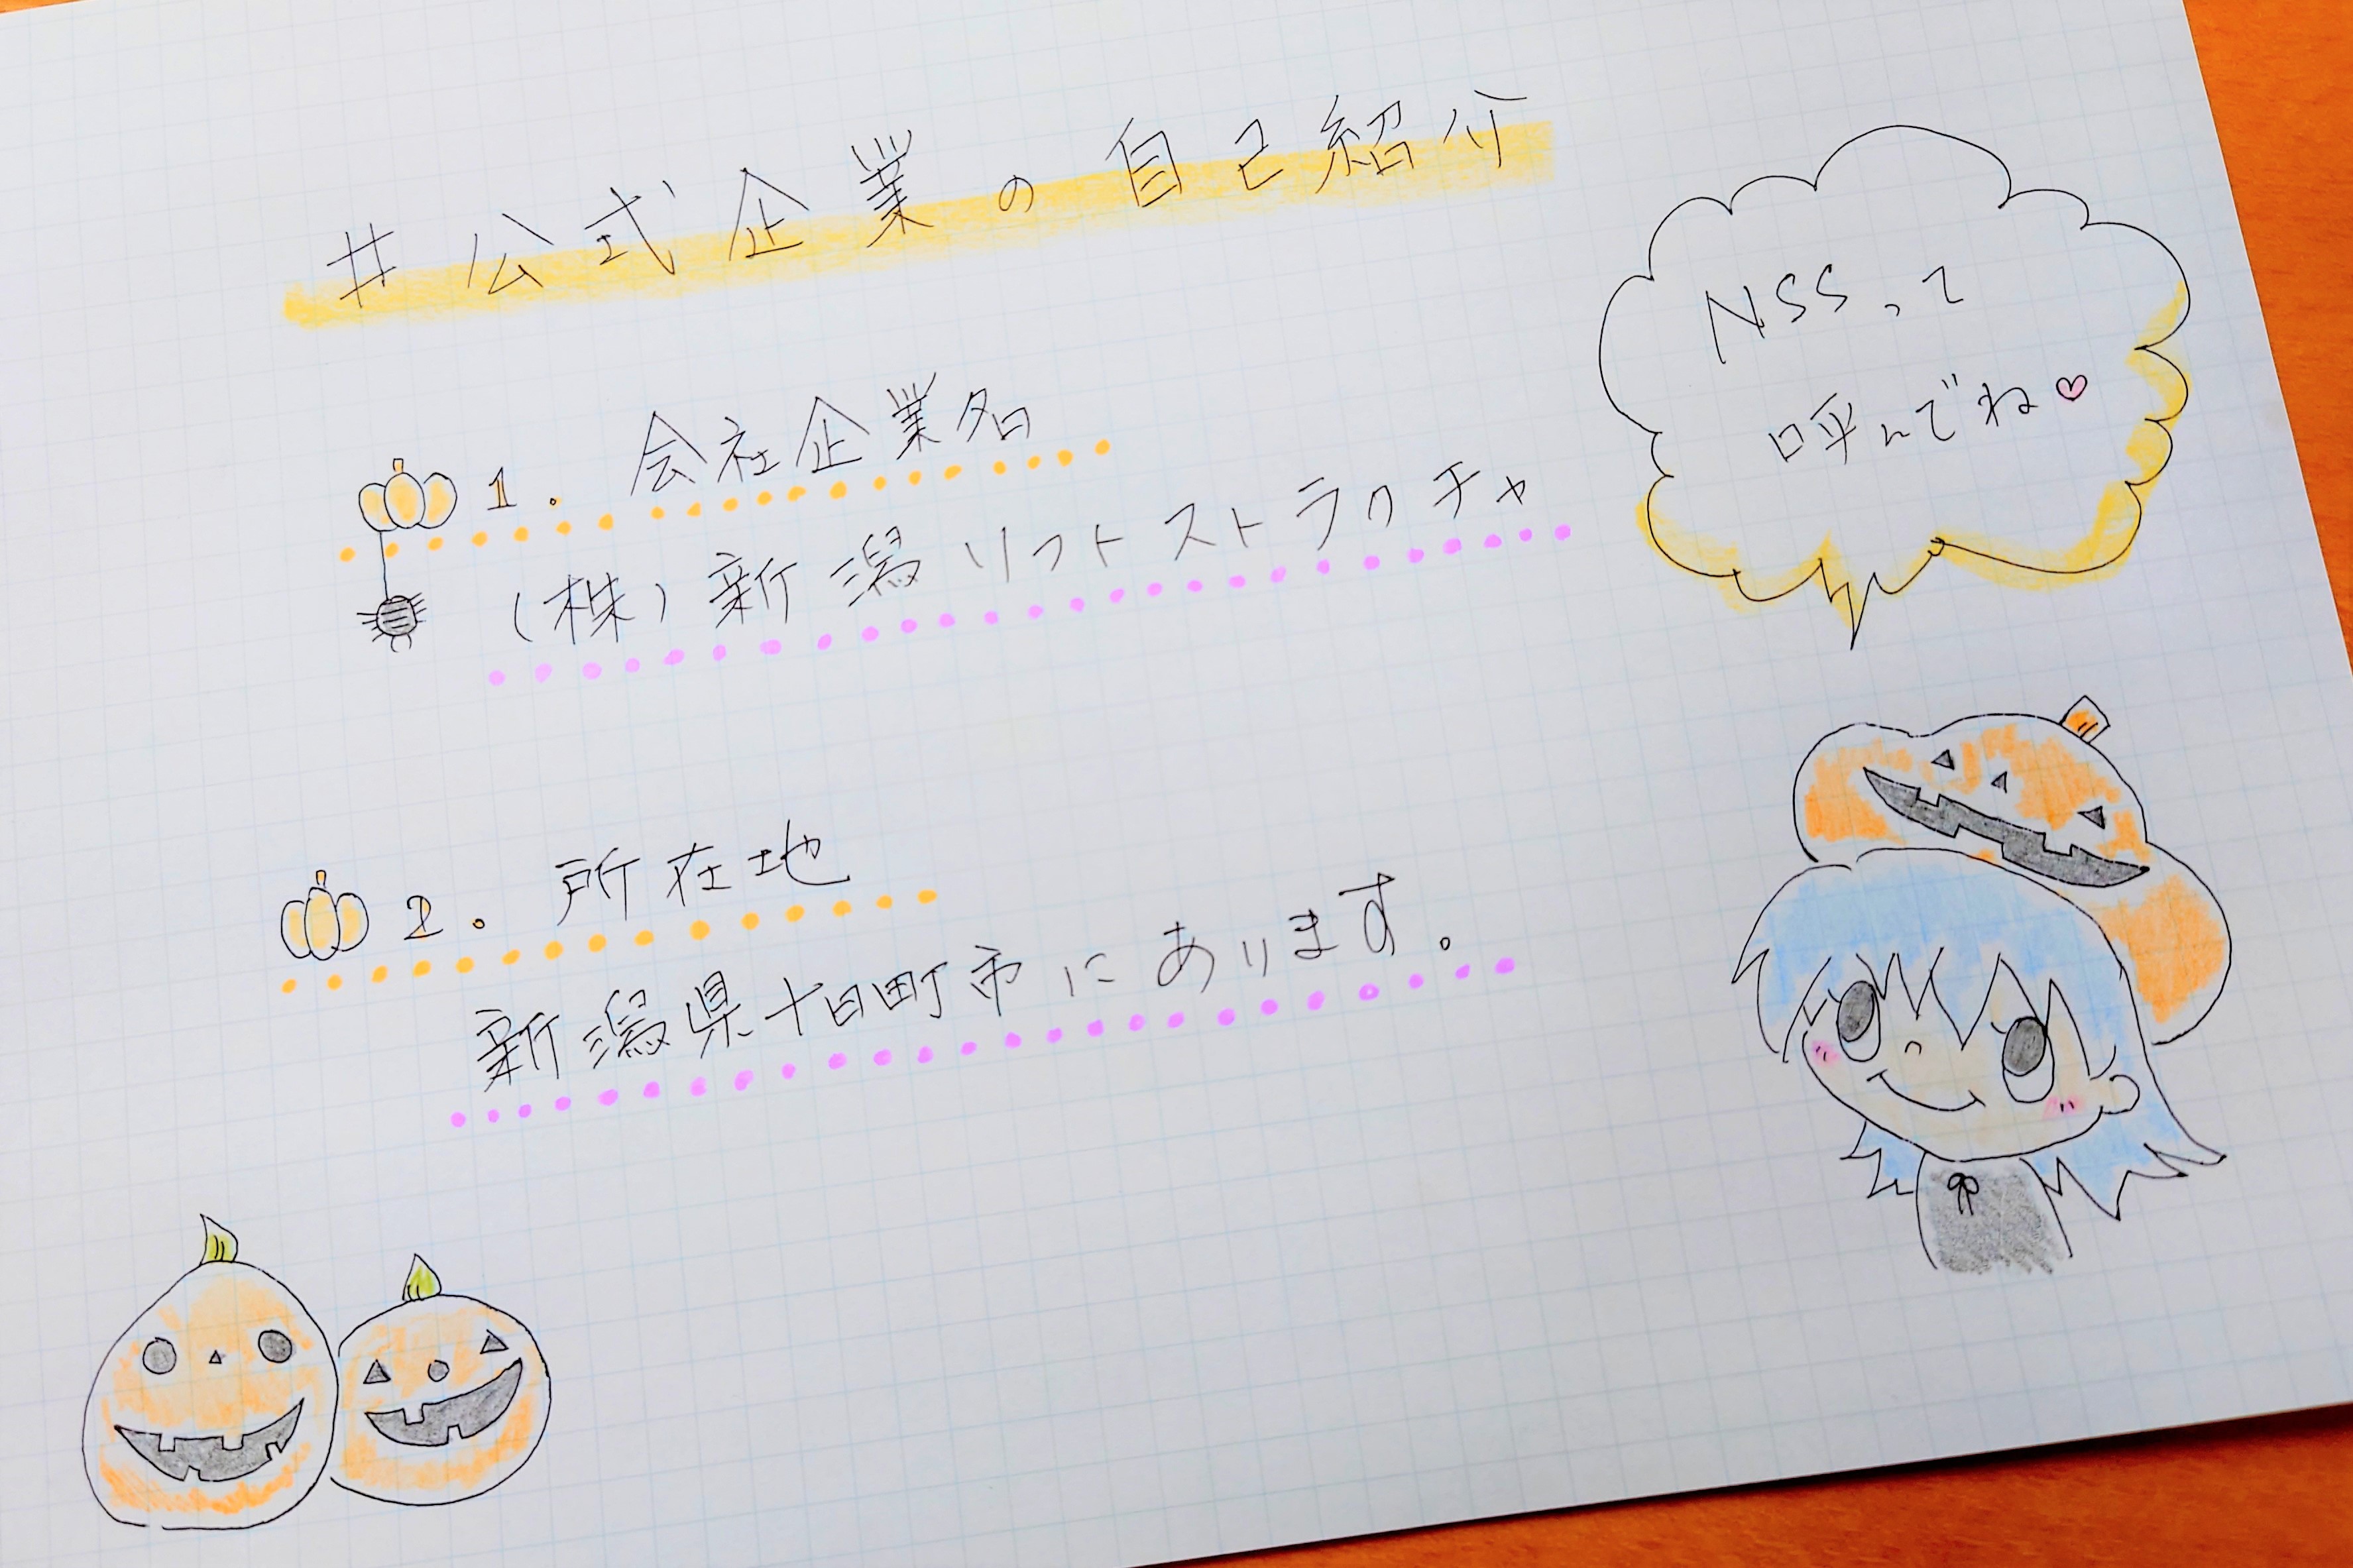 #公式企業の自己紹介
1. 会社企業名
(株)新潟ソフトストラクチャ
2. 所在地
新潟県十日町市にあります。
NSSって
呼んでね♡